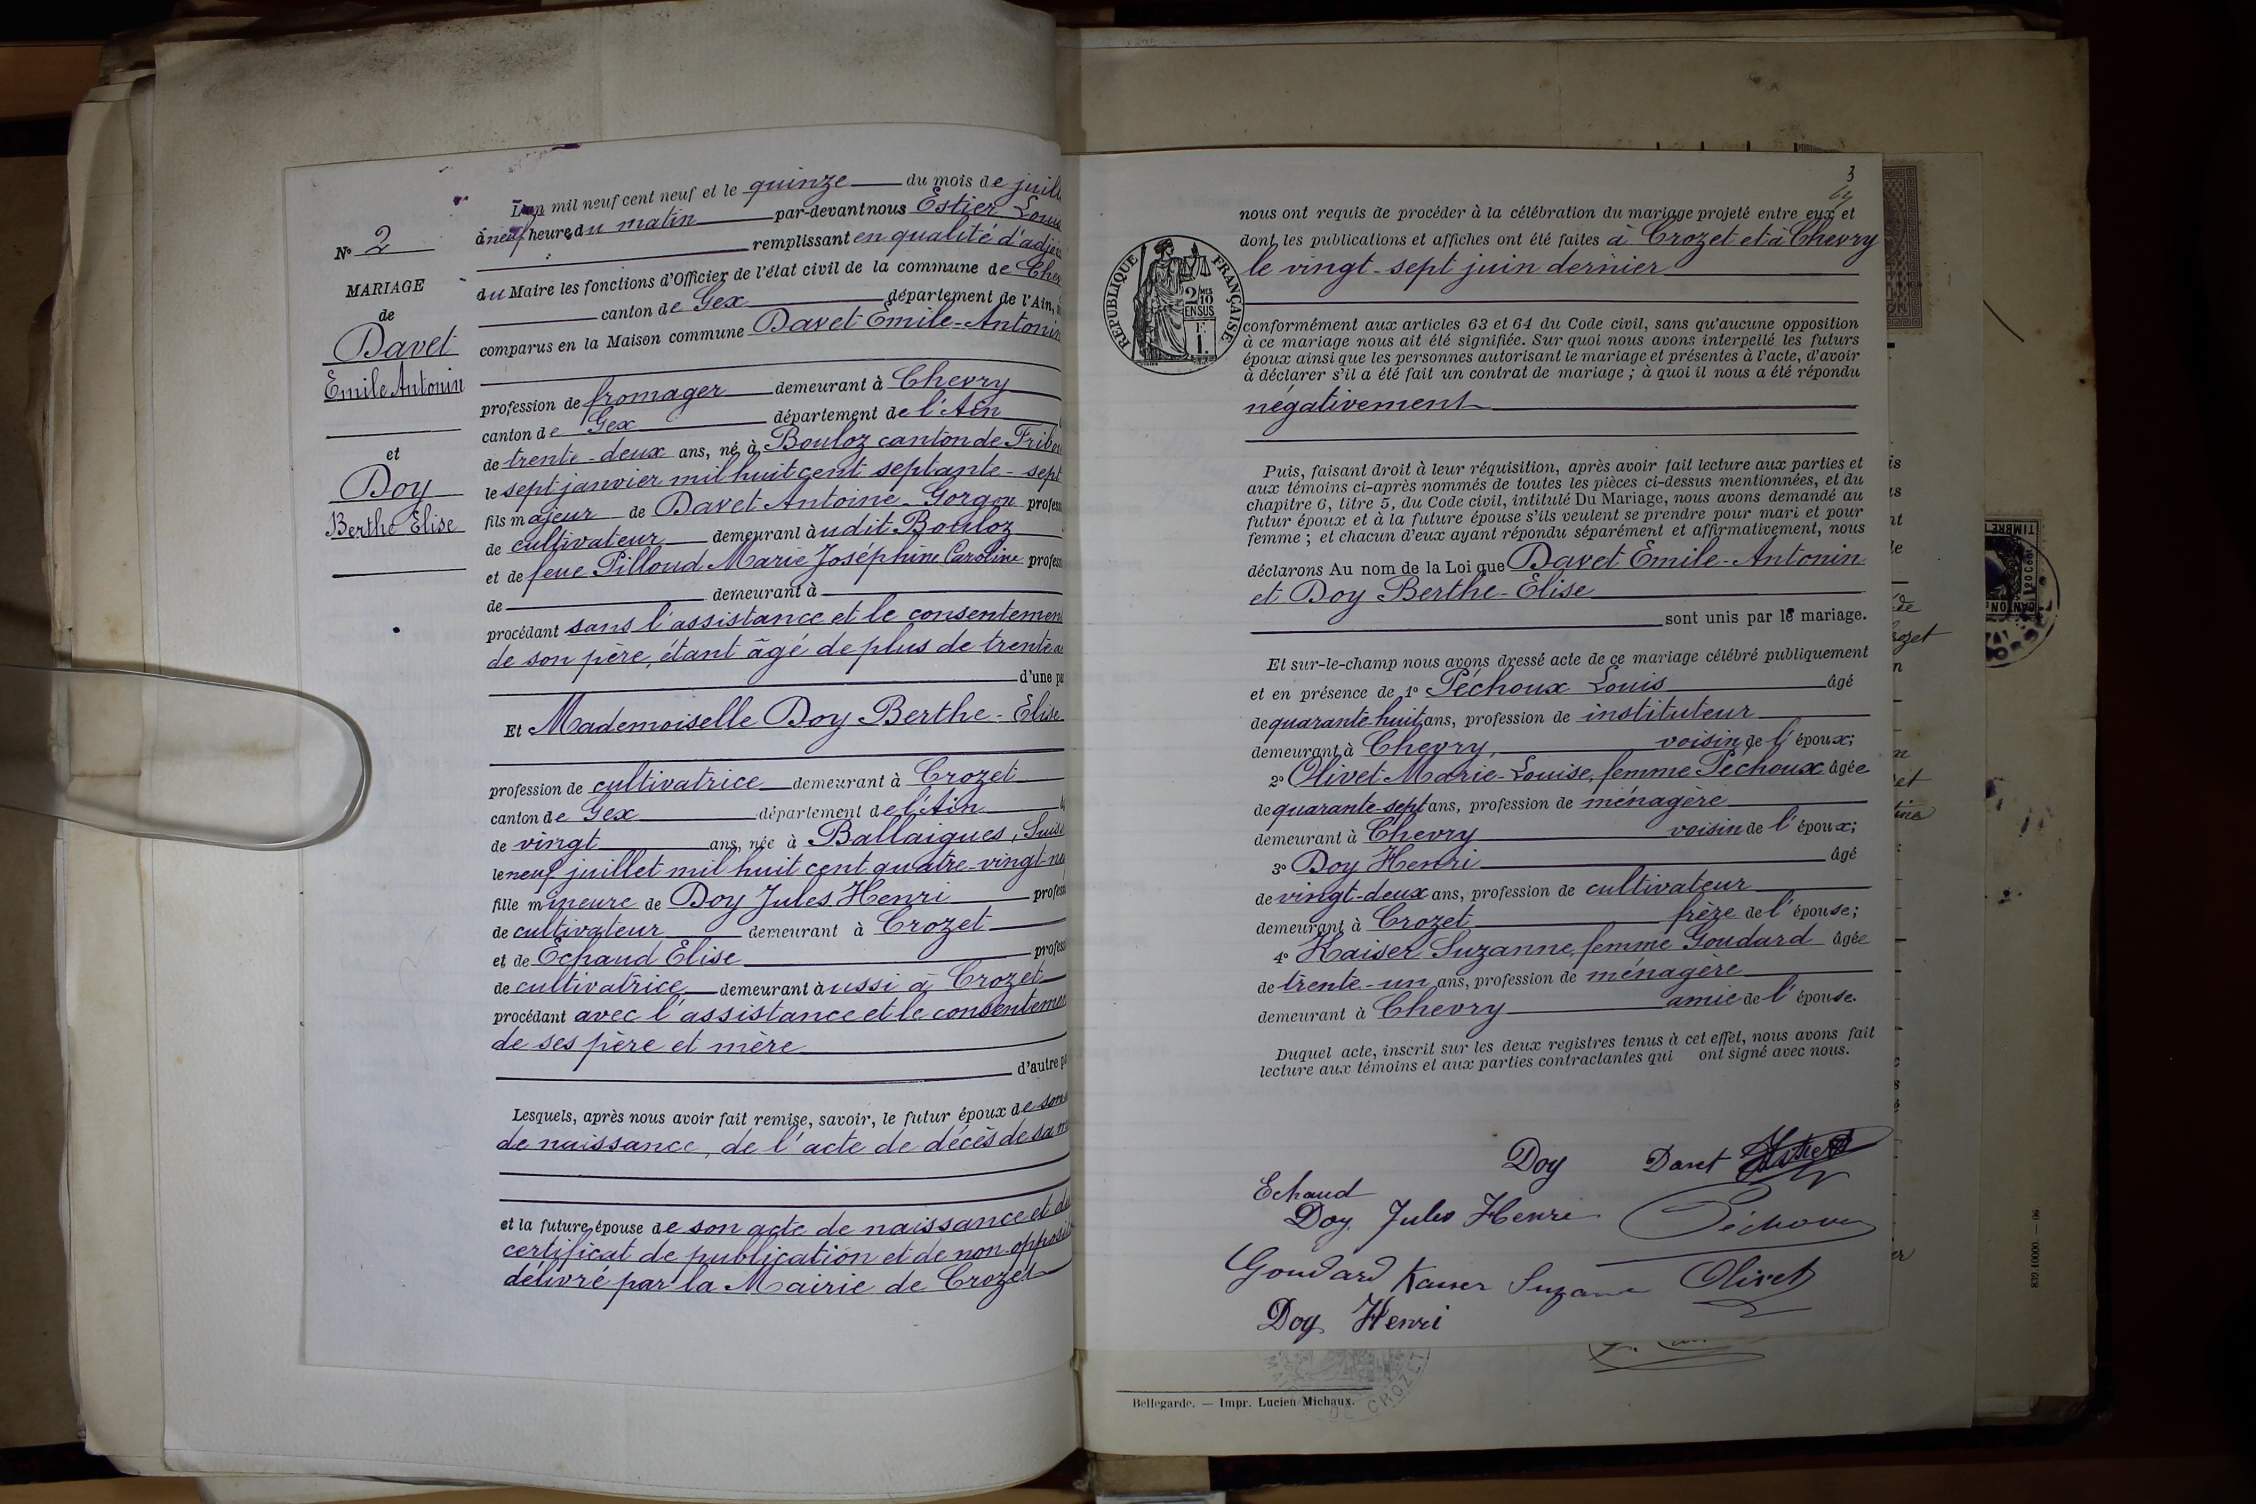 N° 2
MARIAGE
de
Davet
Emile Antonin
et
Doy
Berthe Elise
L'an mil neuf cent neuf et le quinze du mois de juil
à neuf heures du matin par-devant nous Estier Louis
remplissant en qualité d'adjoi
du Maire les fonctions d'Officier de l'état civil de la commune de Chev
canton de Gex département de l'Ain,
comparus en la Maison commune Davet Emile-Antonin
profession de fromager demeurant à Chevry
canton de Gex département de l'Ain
de trente-deux ans, né à Bouloz canton de Fribou
le sept janvier mil huit cent septante-sept
fils majeur de Davet Antoine Gorgon profess
de cultivateur demeurant àudit Bouloz
et de feue Pilloud Marie Joséphine Caroline profess
de demeurant à
procédant sans l'assistance et le consentement
de son père, étant âgé de plus de trente a
d'une pa
Et Mademoiselle Doy Berthe-Elise
profession de cultivatrice demeurant à Crozet
canton de Gex département de l'Ain
de vingt ans, née à Ballaigues, Suiss
le neuf juillet mil huit cent quatre-vingt-ne
fille mineure de Doy Jules Henri profess
de cultivateur demeurant à Crozet
et de Echaud Elise profess
de cultivatrice demeurant aussi à Crozet
procédant avec l'assistance et le consentemen
de ses père et mère
d'autre pa
Lesquels, après nous avoir fait remise, savoir, le futur époux de son
de naissance, de l'acte de décès de sa m
et la future épouse de son acte de naissance et du
certificat de publication et de non-opposit
délivré par la Mairie de Crozet
3
nous ont requis de procéder à la célébration du mariage projeté entre eux et
dont les publications et affiches ont été faites à Crozet et à Chevry
le vingt-sept juin dernier
RÉPUBLIQUE FRANÇAISE
2/10 MES
EN SUS
1 F.
conformément aux articles 63 et 64 du Code civil, sans qu'aucune opposition
à ce mariage nous ait été signifiée. Sur quoi nous avons interpellé les futurs
époux ainsi que les personnes autorisant le mariage et présentes à l'acte, d'avoir
à déclarer s'il a été fait un contrat de mariage ; à quoi il nous a été répondu
négativement
Puis, faisant droit à leur réquisition, après avoir fait lecture aux parties et
aux témoins ci-après nommés de toutes les pièces ci-dessus mentionnées, et du
chapitre 6, litre 5, du Code civil, intitulé Du Mariage, nous avons demandé au
futur époux et à la future épouse s'ils veulent se prendre pour mari et pour
femme ; et chacun d'eux ayant répondu séparément et affirmativement, nous
déclarons Au nom de la Loi que Davet Emile-Antonin
et Doy Berthe-Elise
sont unis par le mariage.
Et sur-le-champ nous avons dressé acte de ce mariage célébré publiquement
et en présence de 1° Péchoux Louis âgé
de quarante-huit ans, profession de instituteur
demeurant à Chevry voisin de l'époux;
2° Olivet Marie-Louise, femme Péchoux âgée
de quarante-sept ans, profession de ménagère
demeurant à Chevry voisin de l'époux;
3° Doy Henri âgé
de vingt-deux ans, profession de cultivateur
demeurant à Crozet frère de l'épouse;
4° Kaiser Suzanne, femme Goudard âgée
de trente-un ans, profession de ménagère
demeurant à Chevry amie de l'épouse.
Duquel acte, inscrit sur les deux registres tenus à cet effet, nous avons fait
lecture aux témoins et aux parties contractantes qui ont signé avec nous.
Doy Davet
Echaud
Doy Jules Henri Péchoux
Goudard Kaiser Suzanne Olivet
Doy Henri
Bellegarde. — Impr. Lucien Michaux.
DE CROZET
839.10000 — 06